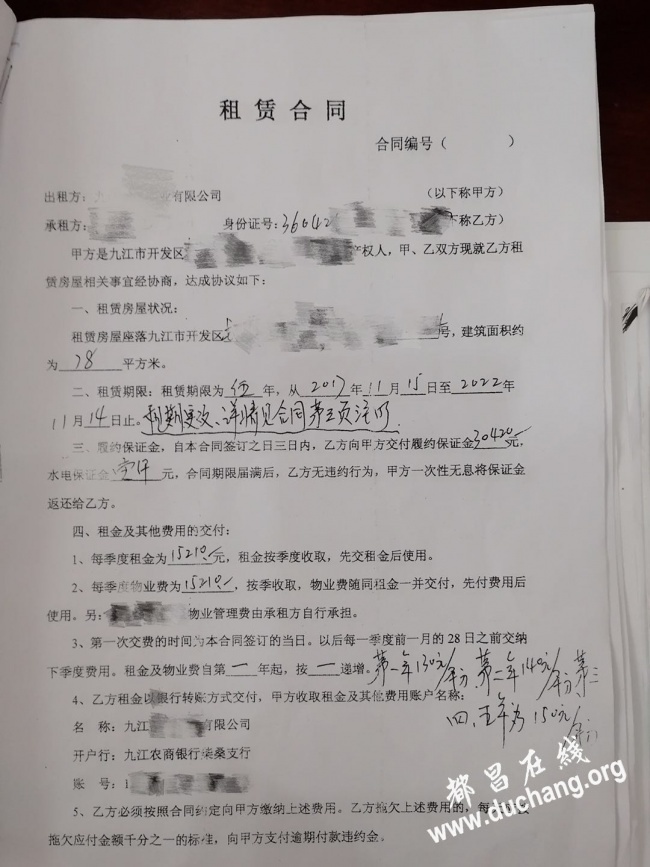 租赁合同
合同编号（ ）
出租方： 业有限公司 （以下称甲方）
承租方： 身份证号：36042 下称乙方）
甲方是九江市开发区 产权人，甲、乙双方现就乙方租
赁房屋相关事宜经协商，达成协议如下：
一、租赁房屋状况：
租赁房屋座落九江市开发区 号，建筑面积约
为 78 平方米。
二、租赁期限：租赁期限为伍年，从2017年11月15日至2022年
11月14日止。租期更改、详情见合同第五页注明
三、履约保证金，自本合同签订之日三日内，乙方向甲方交付履约保证金30420元，
水电保证金壹仟元，合同期限届满后，乙方无违约行为，甲方一次性无息将保证金
返还给乙方。
四、租金及其他费用的交付：
1、每季度租金为15210元，租金按季度收取，先交租金后使用。
2、每季度物业费为15210，按季收取，物业费随同租金一并交付，先付费用后
使用。另： 物业管理费由承租方自行承担。
3、第一次交费的时间为本合同签订的当日。以后每一季度前一月的28日之前交纳
下季度费用。租金及物业费自第一年起，按一递增。第一年130元/ 第二年140元/ 第三
四、五年为150元/
4、乙方租金以银行转账方式交付，甲方收取租金及其他费用账户名称：
名 称：九江 有限公司
开户行：九江农商银行柴桑支行
账 号：1
5、乙方必须按照合同约定向甲方缴纳上述费用。乙方拖欠上述费用的，每
拖欠应付金额千分之一的标准，向甲方支付逾期付款违约金。
都昌在线
www.duchang.org